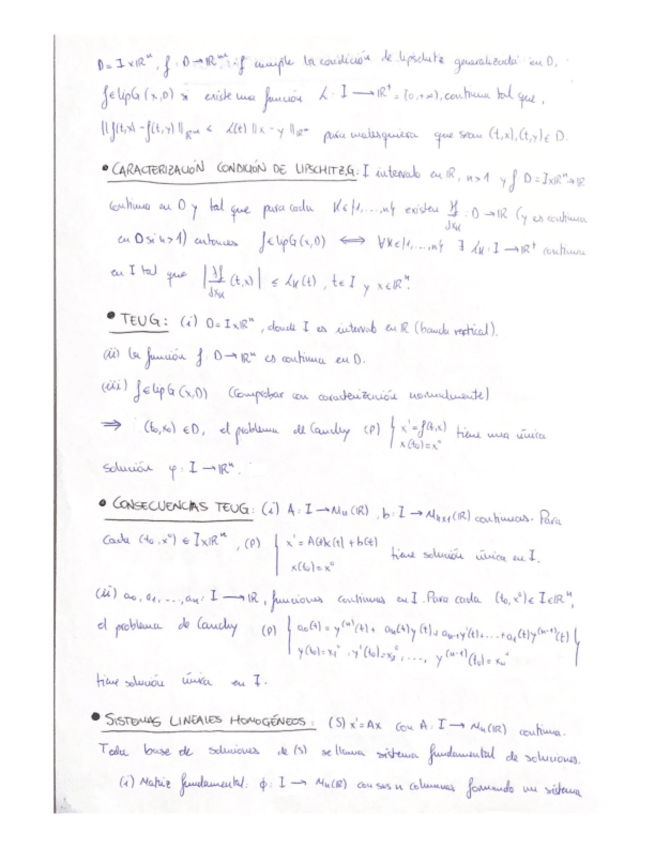 D = I x ℝⁿ, f: D → ℝᵐ; f cumple la condición de lipschitz generalizada en D,
f ∈ LipG (x, D) si existe una función L: I → ℝ⁺ = [0, +∞), continua tal que,
||f(t,x) - f(t,y)||ℝᵐ ≤ L(t) ||x - y||ℝⁿ para cualesquiera que sean (t,x), (t,y) ∈ D.
• CARACTERIZACIÓN CONDICIÓN DE LIPSCHITZ G: I intervalo en ℝ, n>1 y f D = I x ℝⁿ → ℝ
continua en D y tal que para cada k ∈ {1, ..., n} existen ∂f/∂xₖ : D → ℝ (y es continua
en D si n>1) entonces f ∈ LipG (x, D) ⟺ ∀k ∈ {1, ..., n} ∃ Lₖ: I → ℝ⁺ continua
en I tal que |∂f/∂xₖ (t,x)| ≤ Lₖ(t), t ∈ I y x ∈ ℝⁿ.
• TEUG: (i) D = I x ℝⁿ, donde I es intervalo en ℝ (banda vertical).
(ii) la función f: D → ℝⁿ es continua en D.
(iii) f ∈ LipG (x, D) (comprobar con caracterización normalmente)
⇒ (t₀, x₀) ∈ D, el problema de Cauchy (P) { x' = f(t,x) x(t₀) = x⁰ tiene una única
solución φ: I → ℝⁿ.
• CONSECUENCIAS TEUG: (i) A: I → Mₙ(ℝ), b: I → Mₙₓ₁(ℝ) continuas. Para
cada (t₀, x⁰) ∈ I x ℝⁿ, (P) { x' = A(t)x(t) + b(t) x(t₀) = x⁰ tiene solución única en I.
(ii) a₀, a₁, ..., aₙ: I → ℝ, funciones continuas en I. Para cada (t₀, x⁰) ∈ I x ℝⁿ,
el problema de Cauchy (P) { a₀(t) = y⁽ⁿ⁾(t) + aₙ(t) y(t) + aₙ₋₁ y'(t) + ... + a₁(t) y⁽ⁿ⁻¹⁾(t) y(t₀) = x₁⁰, y'(t₀) = x₂⁰, ..., y⁽ⁿ⁻¹⁾(t₀) = xₙ⁰ }
tiene solución única en I.
• SISTEMAS LINEALES HOMOGÉNEOS: (S) x' = Ax con A: I → Mₙ(ℝ) continua.
Toda base de soluciones de (S) se llama sistema fundamental de soluciones.
(i) Matriz fundamental: φ: I → Mₙ(ℝ) con sus n columnas formando un sistema